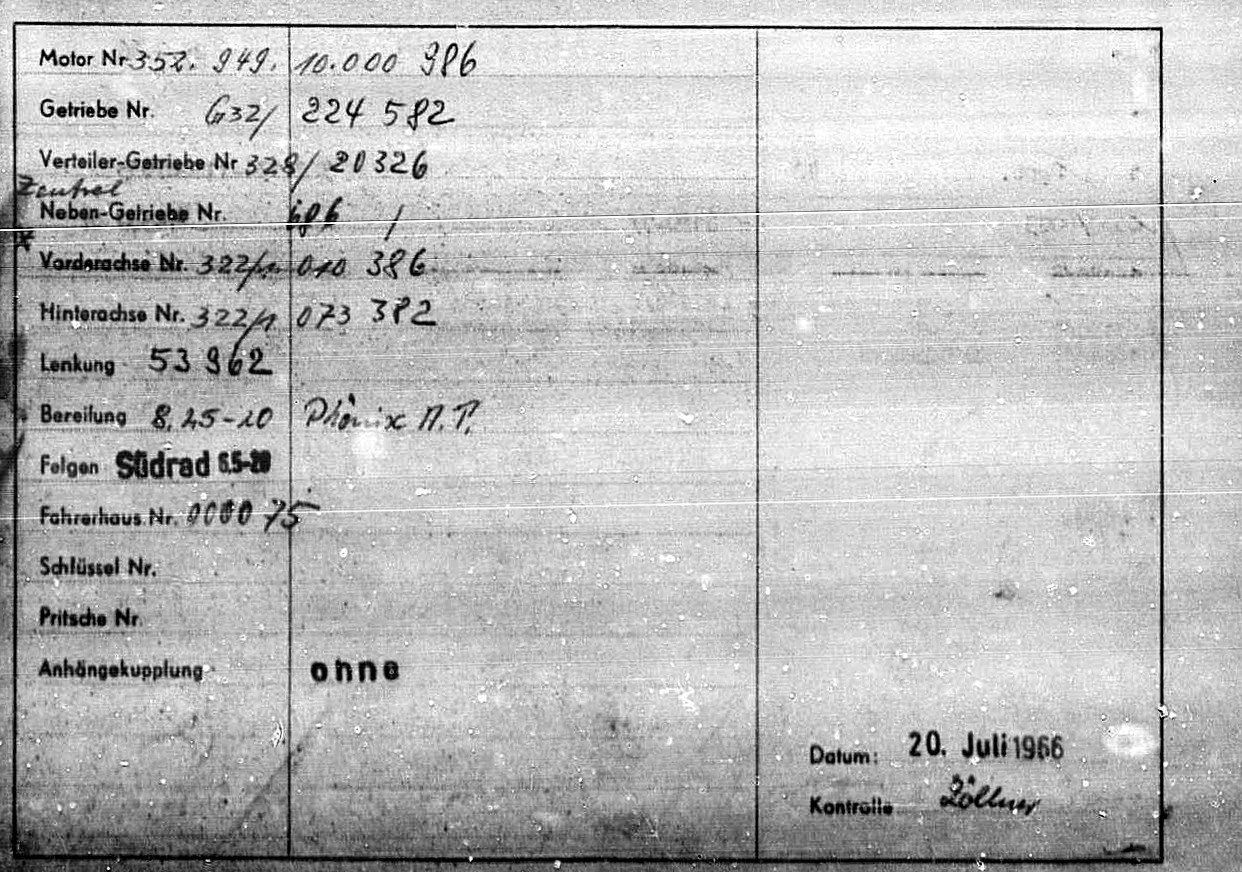 Motor Nr. 352. 949. 10.000 986
Getriebe Nr. G32/ 224 582
Verteiler-Getriebe Nr 328/ 20326
Zentral
Neben-Getriebe Nr. /
Vorderachse Nr. 322/1 010 386
Hinterachse Nr. 322/1 073 382
Lenkung 53 962
Bereifung 8,25-20 Phönix
Felgen Südrad 6.5-20
Fahrerhaus Nr. 000075
Schlüssel Nr.
Pritsche Nr.
Anhängekupplung ohne
Datum: 20. Juli 1966
Kontrolle Zöllner